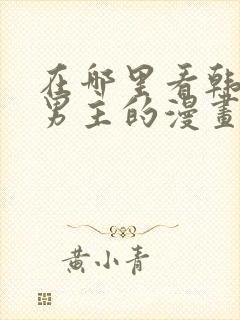 在哪里看韩
男主的漫畫
黄小青